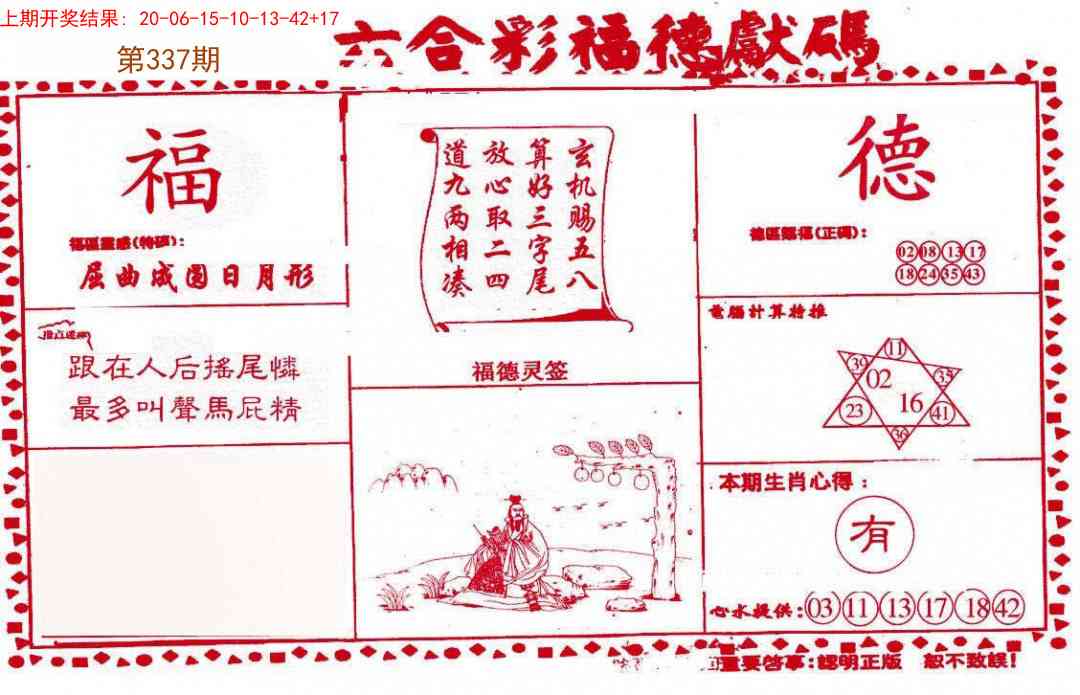 上期开奖结果: 20-06-15-10-13-42+17
第337期
六合彩福德獻碼
福
福區靈感(特碼):
屈曲成圆日月形
跟在人后搖尾憐
最多叫聲馬屁精
玄机赐五八
算好三字尾
放心取二四
道九两相凑
福德灵签
德
德區賜福(正碼):
02 08 13 17
18 24 35 43
電腦計算特推
11
39 02 35
23 16 41
36
本期生肖心得:
有
心水提供: 03 11 13 17 18 42
重要啓事:認明正版 恕不致誤!